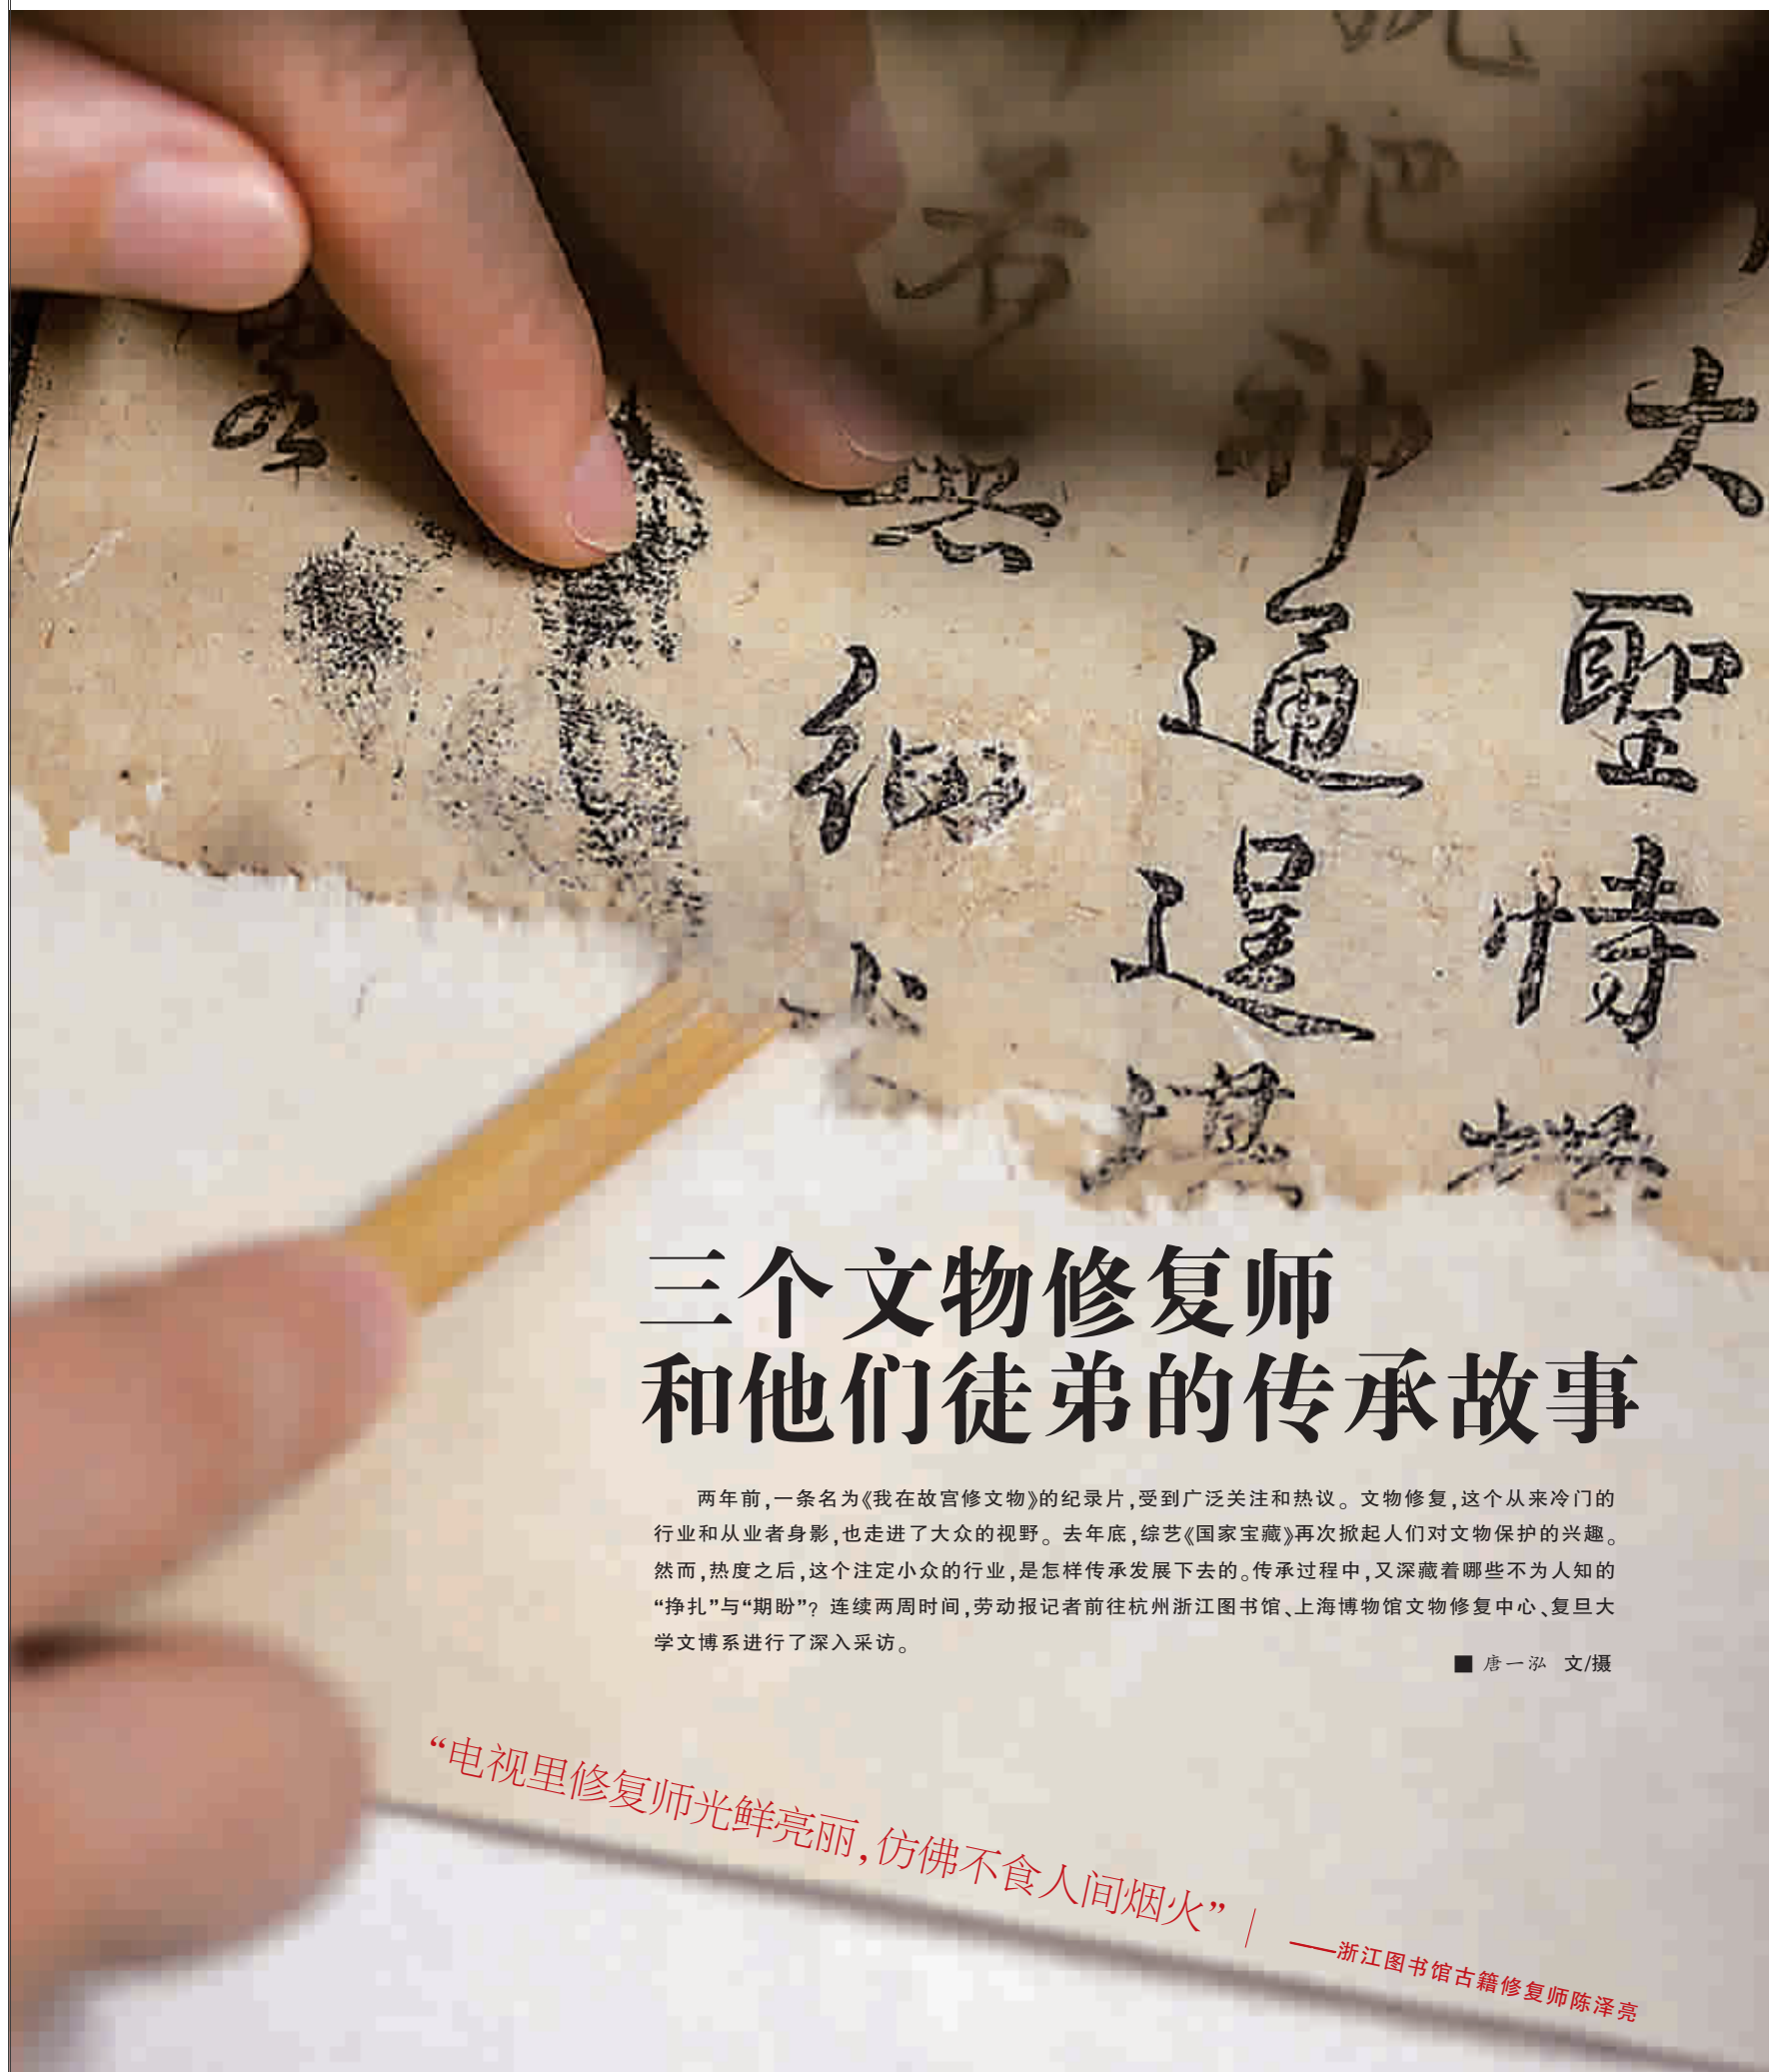 大
聖
恃
神
通
逞
細
三个文物修复师
和他们徒弟的传承故事
两年前,一条名为《我在故宫修文物》的纪录片,受到广泛关注和热议。文物修复,这个从来冷门的
行业和从业者身影,也走进了大众的视野。去年底,综艺《国家宝藏》再次掀起人们对文物保护的兴趣。
然而,热度之后,这个注定小众的行业,是怎样传承发展下去的。传承过程中,又深藏着哪些不为人知的
“挣扎”与“期盼”？连续两周时间,劳动报记者前往杭州浙江图书馆、上海博物馆文物修复中心、复旦大
学文博系进行了深入采访。
■ 唐一泓 文/摄
“电视里修复师光鲜亮丽,仿佛不食人间烟火”｜
——浙江图书馆古籍修复师陈泽亮